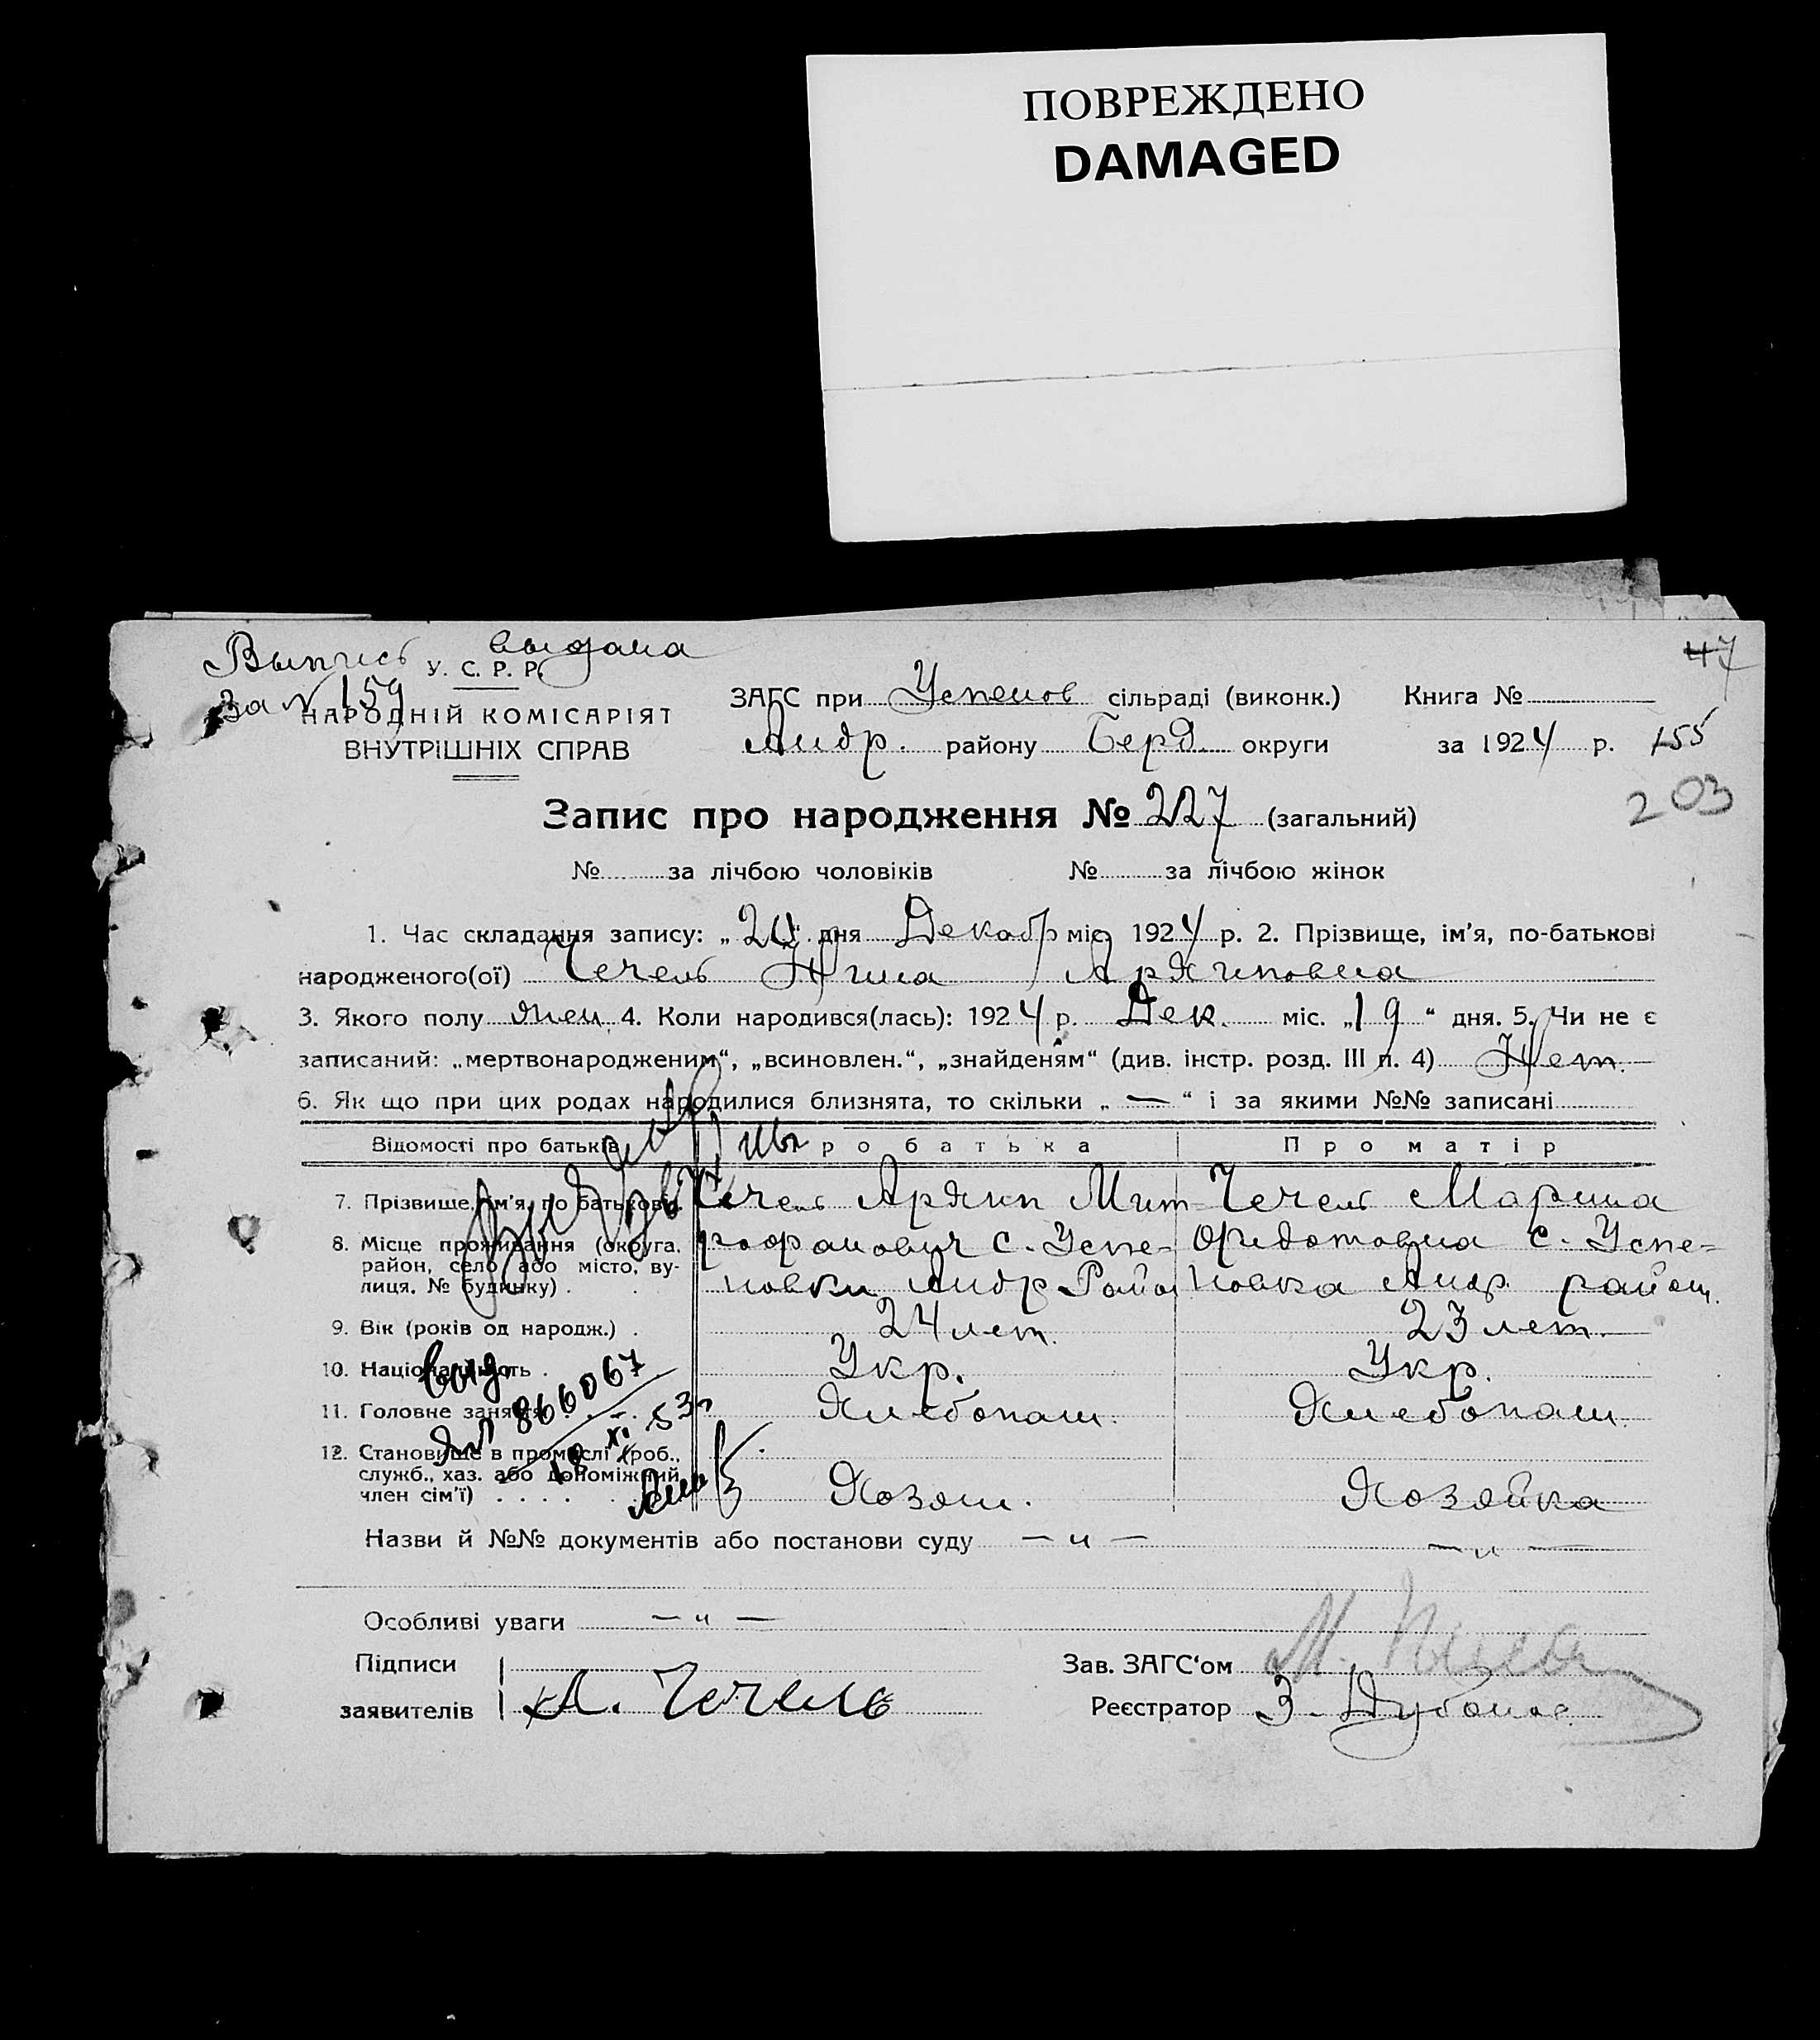 ПОВРЕЖДЕНО
DAMAGED
Выпись выдана
за № 159
У. С. Р. Р.
НАРОДНІЙ КОМІСАРІЯТ
ВНУТРІШНІХ СПРАВ
47
ЗАГС при Успенов сільраді (виконк.) Книга №
Андр. району Берд. округи за 1924 р. 155
203
Запис про народження № 227 (загальний)
№ за лічбою чоловіків № за лічбою жінок
1. Час складання запису: „20“ дня Декабр міс. 1924 р. 2. Прізвище, ім’я, по-батькові
народженого(ої) Чечель Нина Архиповна
3. Якого полу жен. 4. Коли народився(лась): 1924 р. Дек. міс. „19“ дня. 5. Чи не є
записаний: „мертвонародженим“, „всиновлен.“, „знайденям“ (див. інстр. розд. III п. 4) Нет.
6. Як що при цих родах народилися близнята, то скільки „ — “ і за якими №№ записані
Відомості про батьків Про батька Про матір
7. Прізвище, ім’я, по батькові. Чечель Архип Мит- Чечель Марина
8. Місце проживання (округа, рофанович с. Успе- Федотовна с. Успе=
район, село або місто, ву-
лиця, № будинку) . новки Андр Район новка Андр. район.
9. Вік (років од народж.) . 24 лет. 23 лет.
10. Національність . Укр. Укр.
11. Головне заняття Хлебопаш. Хлебопаш.
12. Становище в промислі (роб.,
служб., хаз. або допоміжний
член сім’ї) . . . . Хозяин. Хозяйка
выд.
866067
18 XI 53
Назви й №№ документів або постанови суду — „ — — „ —
Особливі уваги — „ —
Підписи Зав. ЗАГС‘ом М.
заявителів А. Чечель Реєстратор З.